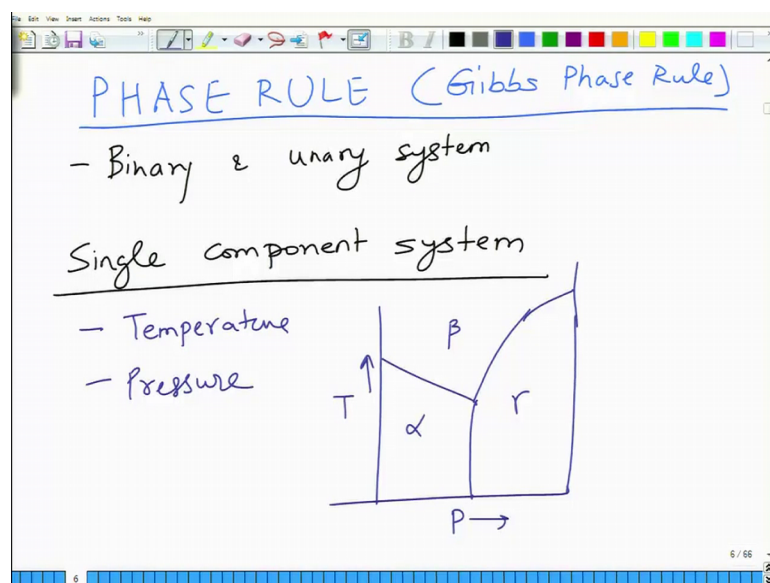 File Edit View Insert Actions Tools Help
B I
PHASE RULE (Gibbs Phase Rule)
- Binary & unary system
Single component system
- Temperature
- Pressure
β
T
α
r
P →
6 / 66
6